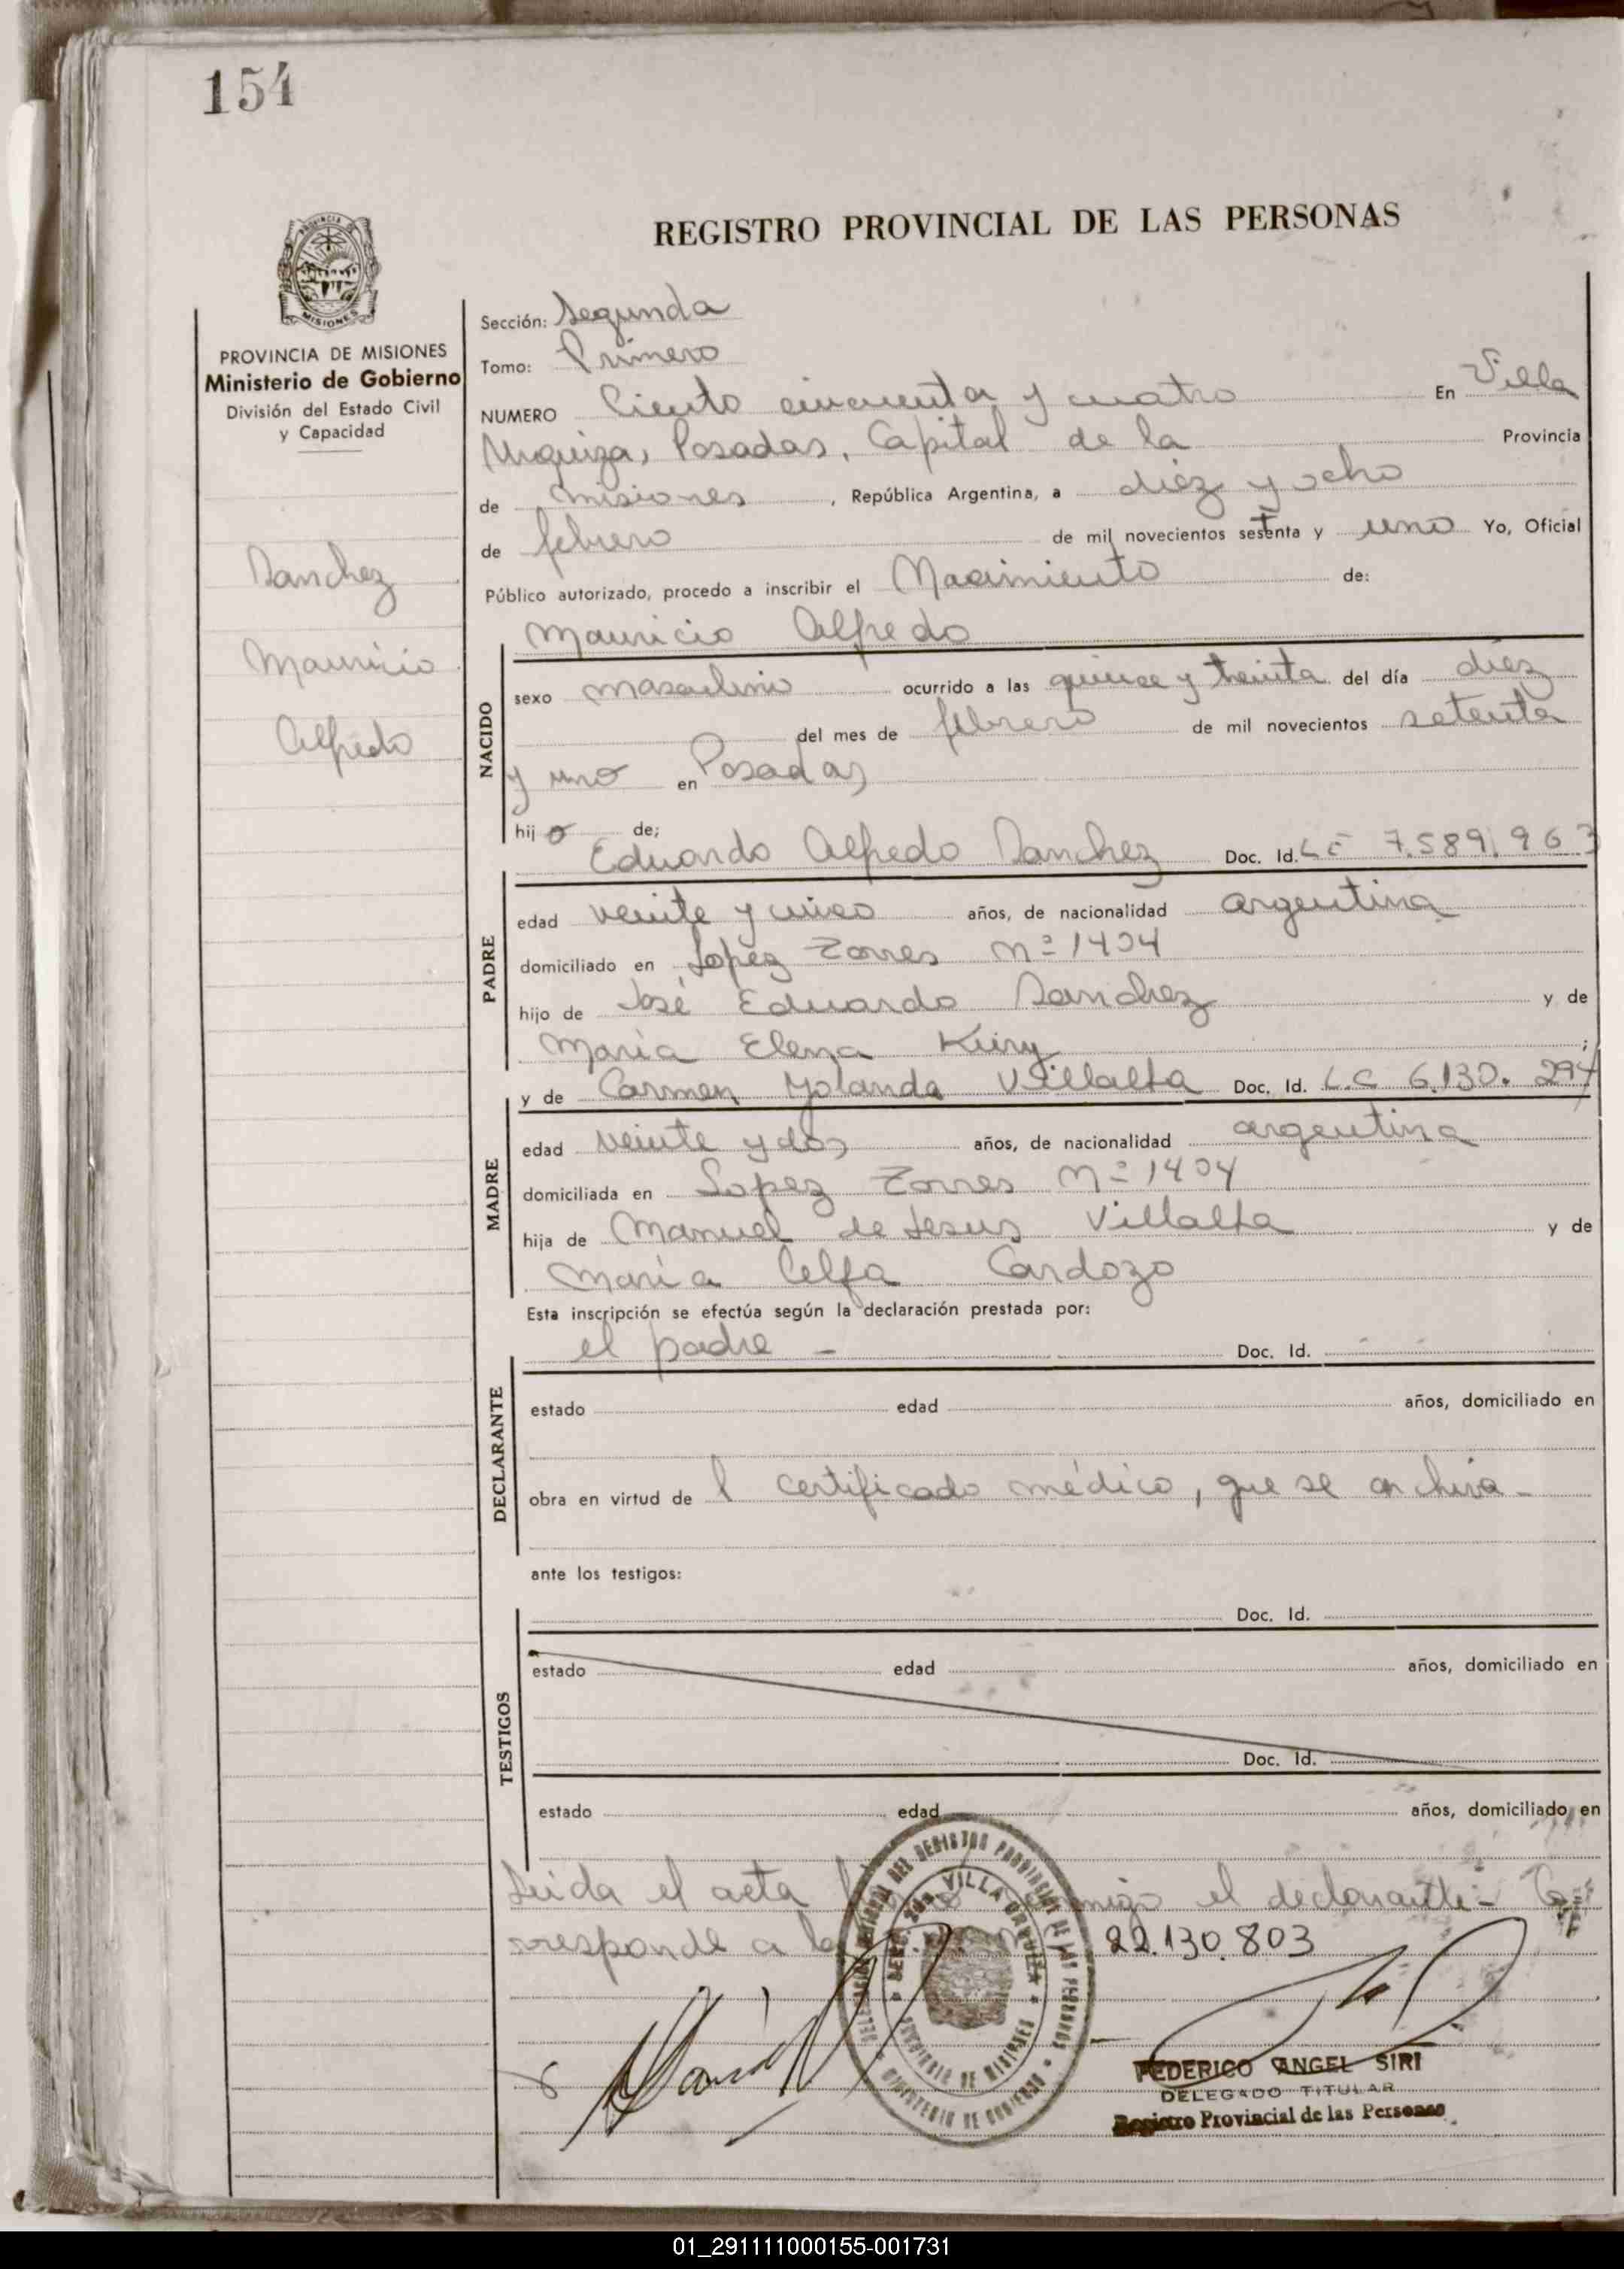 154
REGISTRO PROVINCIAL DE LAS PERSONAS
PROVINCIA
MISIONES
PROVINCIA DE MISIONES
Ministerio de Gobierno
División del Estado Civil
y Capacidad
Sanchez
Mauricio
Alfredo
Sección: Segunda
Tomo: Primero
NUMERO Ciento cincuenta y cuatro En Villa
Urquiza, Posadas, Capital de la Provincia
de Misiones, República Argentina, a diez y ocho
de febrero de mil novecientos setenta y uno Yo, Oficial
Público autorizado, procedo a inscribir el Nacimiento de:
Mauricio Alfredo
NACIDO
sexo masculino ocurrido a las quince y treinta del día diez
del mes de febrero de mil novecientos setenta
y uno en Posadas
hijo de:
Eduardo Alfredo Sanchez Doc. Id. L E 7.589.963
PADRE
edad veinte y cinco años, de nacionalidad argentina
domiciliado en Lopez Torres Nº 1404
hijo de José Eduardo Sanchez y de
María Elena ;
y de Carmen Yolanda Villalta Doc. Id. L.C 6.130.294
MADRE
edad veinte y dos años, de nacionalidad argentina
domiciliada en Lopez Torres Nº 1404
hija de Manuel de Jesus Villalta y de
María Celfa Cardozo
Esta inscripción se efectúa según la declaración prestada por:
el padre - Doc. Id.
DECLARANTE
estado edad años, domiciliado en
obra en virtud de l certificado médico, que se archiva-
ante los testigos:
Doc. Id.
TESTIGOS
estado edad años, domiciliado en
Doc. Id.
estado edad años, domiciliado en
Leida el acta el declarante- Co
rresponde a la 22.130.803
VILLA URQUIZA
PROVINCIA DE MISIONES
MINISTERIO DE GOBIERNO
FEDERICO ANGEL SIRI
DELEGADO TITULAR
Registro Provincial de las Personas
01_291111000155-001731